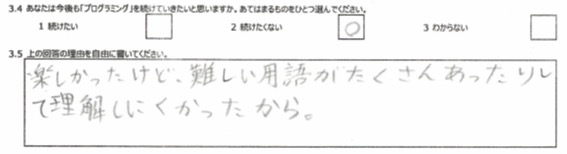 3.4 あなたは今後も「プログラミング」を続けていきたいと思いますか。あてはまるものをひとつ選んでください。
1 続けたい 2 続けたくない ○ 3 わからない
3.5 上の回答の理由を自由に書いてください。
楽しかったけど、難しい用語がたくさんあったりし
て理解しにくかったから。